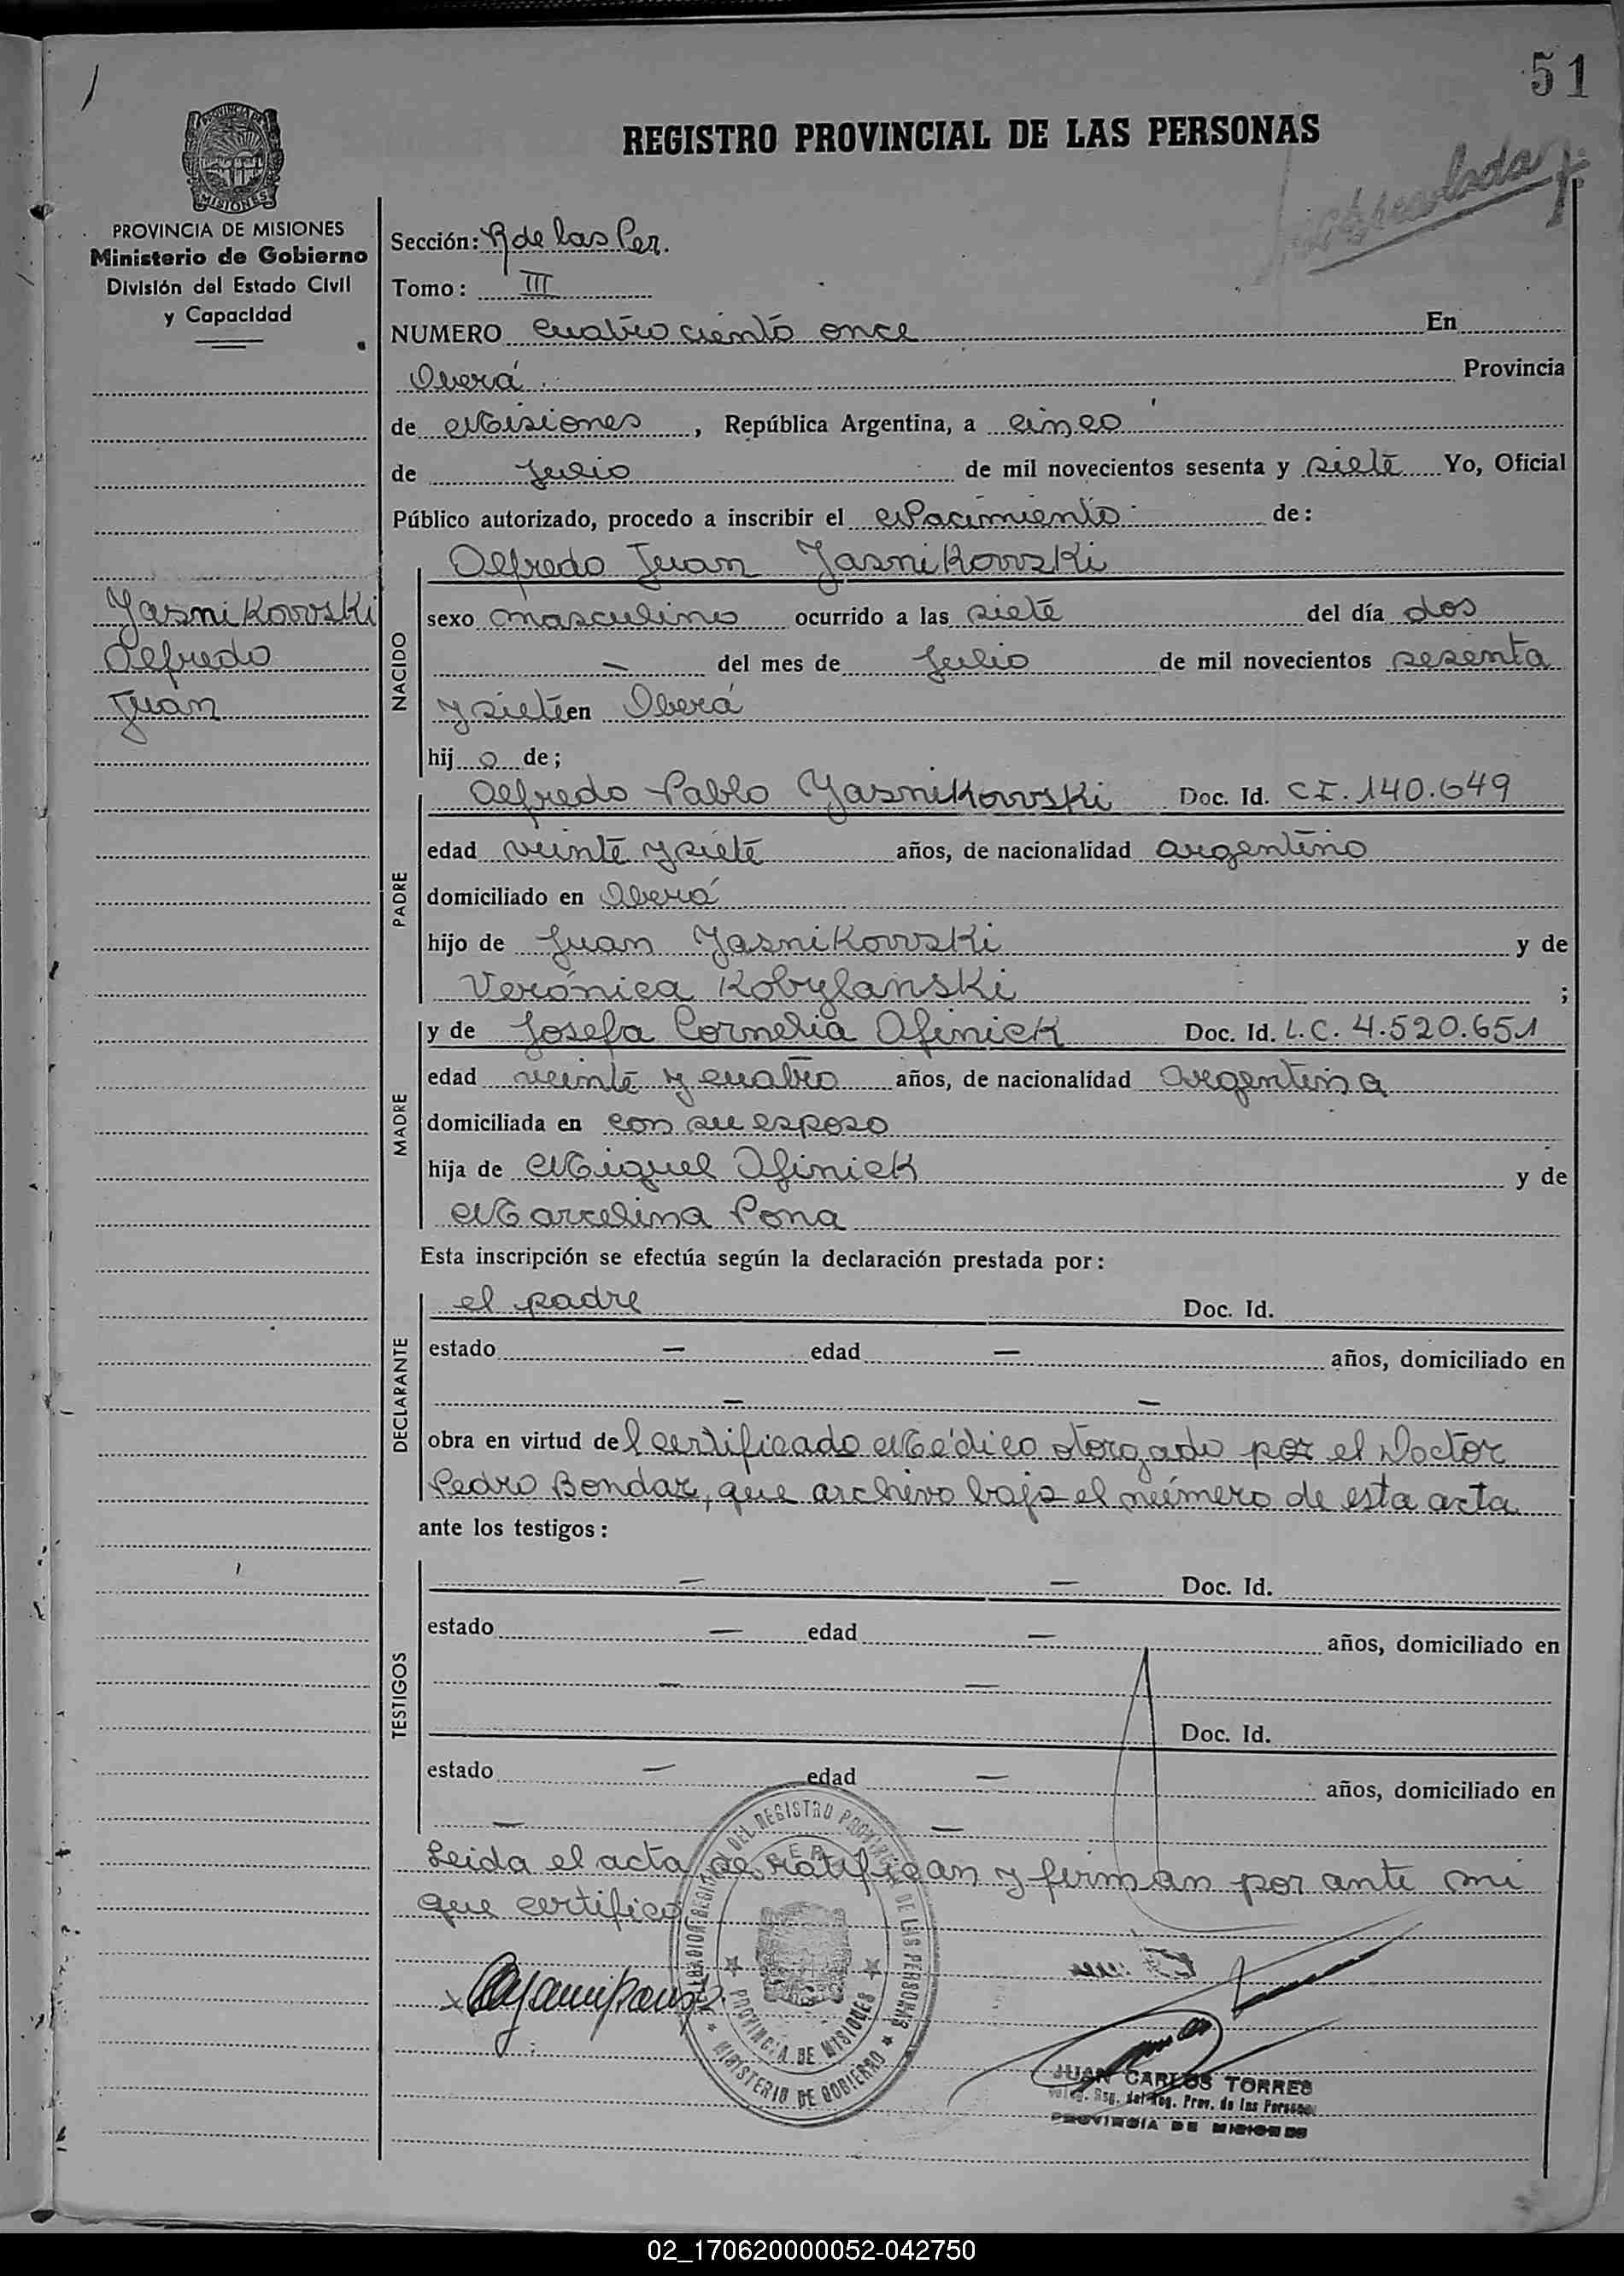 51
REGISTRO PROVINCIAL DE LAS PERSONAS
PROVINCIA DE MISIONES
Ministerio de Gobierno
División del Estado Civil
y Capacidad
Sección: R de las Per.
Tomo: III
NUMERO cuatro ciento once En
Oberá Provincia
de Misiones, República Argentina, a cinco
de Julio de mil novecientos sesenta y siete Yo, Oficial
Público autorizado, procedo a inscribir el Nacimiento de:
Yasnikowski
Alfredo
Juan
NACIDO
Alfredo Juan Yasnikowski
sexo masculino ocurrido a las siete del día dos
— del mes de Julio de mil novecientos sesenta
y siete en Oberá
hijo de;
PADRE
Alfredo Pablo Yasnikowski Doc. Id. C.I. 140.649
edad veinte y siete años, de nacionalidad argentino
domiciliado en Oberá
hijo de Juan Yasnikowski y de
Verónica Kobylanski ;
MADRE
y de Josefa Cornelia Ofinick Doc. Id. L.C. 4.520.651
edad veinte y cuatro años, de nacionalidad Argentina
domiciliada en con su esposo
hija de Miguel Ofinick y de
Marcelina Pona
Esta inscripción se efectúa según la declaración prestada por:
DECLARANTE
el padre Doc. Id.
estado — edad — años, domiciliado en
— —
obra en virtud del certificado Médico otorgado por el Doctor
Pedro Bondar, que archivo bajo el número de esta acta
ante los testigos:
TESTIGOS
— — Doc. Id.
estado — edad — años, domiciliado en
— —
Doc. Id.
estado — edad — años, domiciliado en
— —
Leida el acta, se ratifican y firman por ante mi
que certifico
DEL REGISTRO PROVINCIAL DE LAS PERSONAS
PROVINCIA DE MISIONES
MINISTERIO DE GOBIERNO
JUAN CARLOS TORRES
Reg. del Reg. Prov. de las Personas
PROVINCIA DE MISIONES
02_170620000052-042750